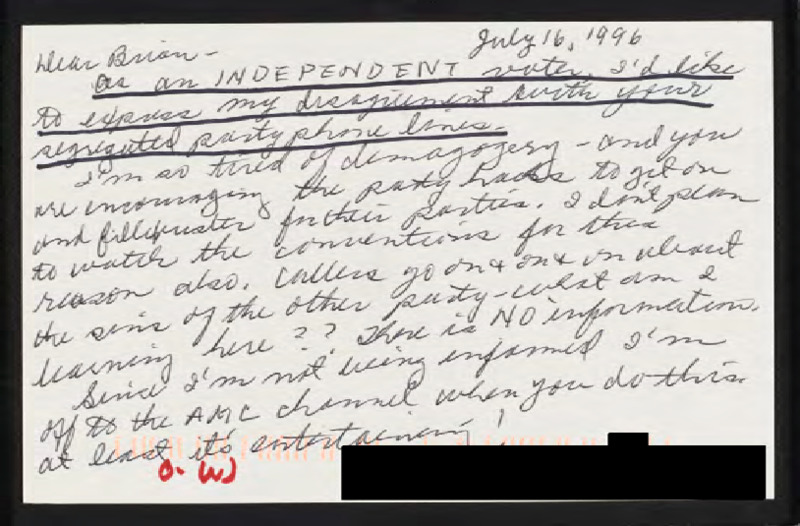 July 16, 1996
Dear Brian -
As an INDEPENDENT voter, I'd like
to express my disagreement with your
segregated party phone lines.
I'm so tired of demagogery - and you
are encouraging the party hacks to get on
and fillibuster for their parties. I don't plan
to watch the conventions for this
reason also. Callers go on & on & on about
the sins of the other party - what am I
learning here?? There is NO information.
Since I'm not being informed I'm
off to the AMC channel when you do this.
at least it's entertaining!